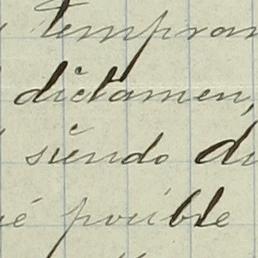 tempran
dictamen,
siendo di
ué posible